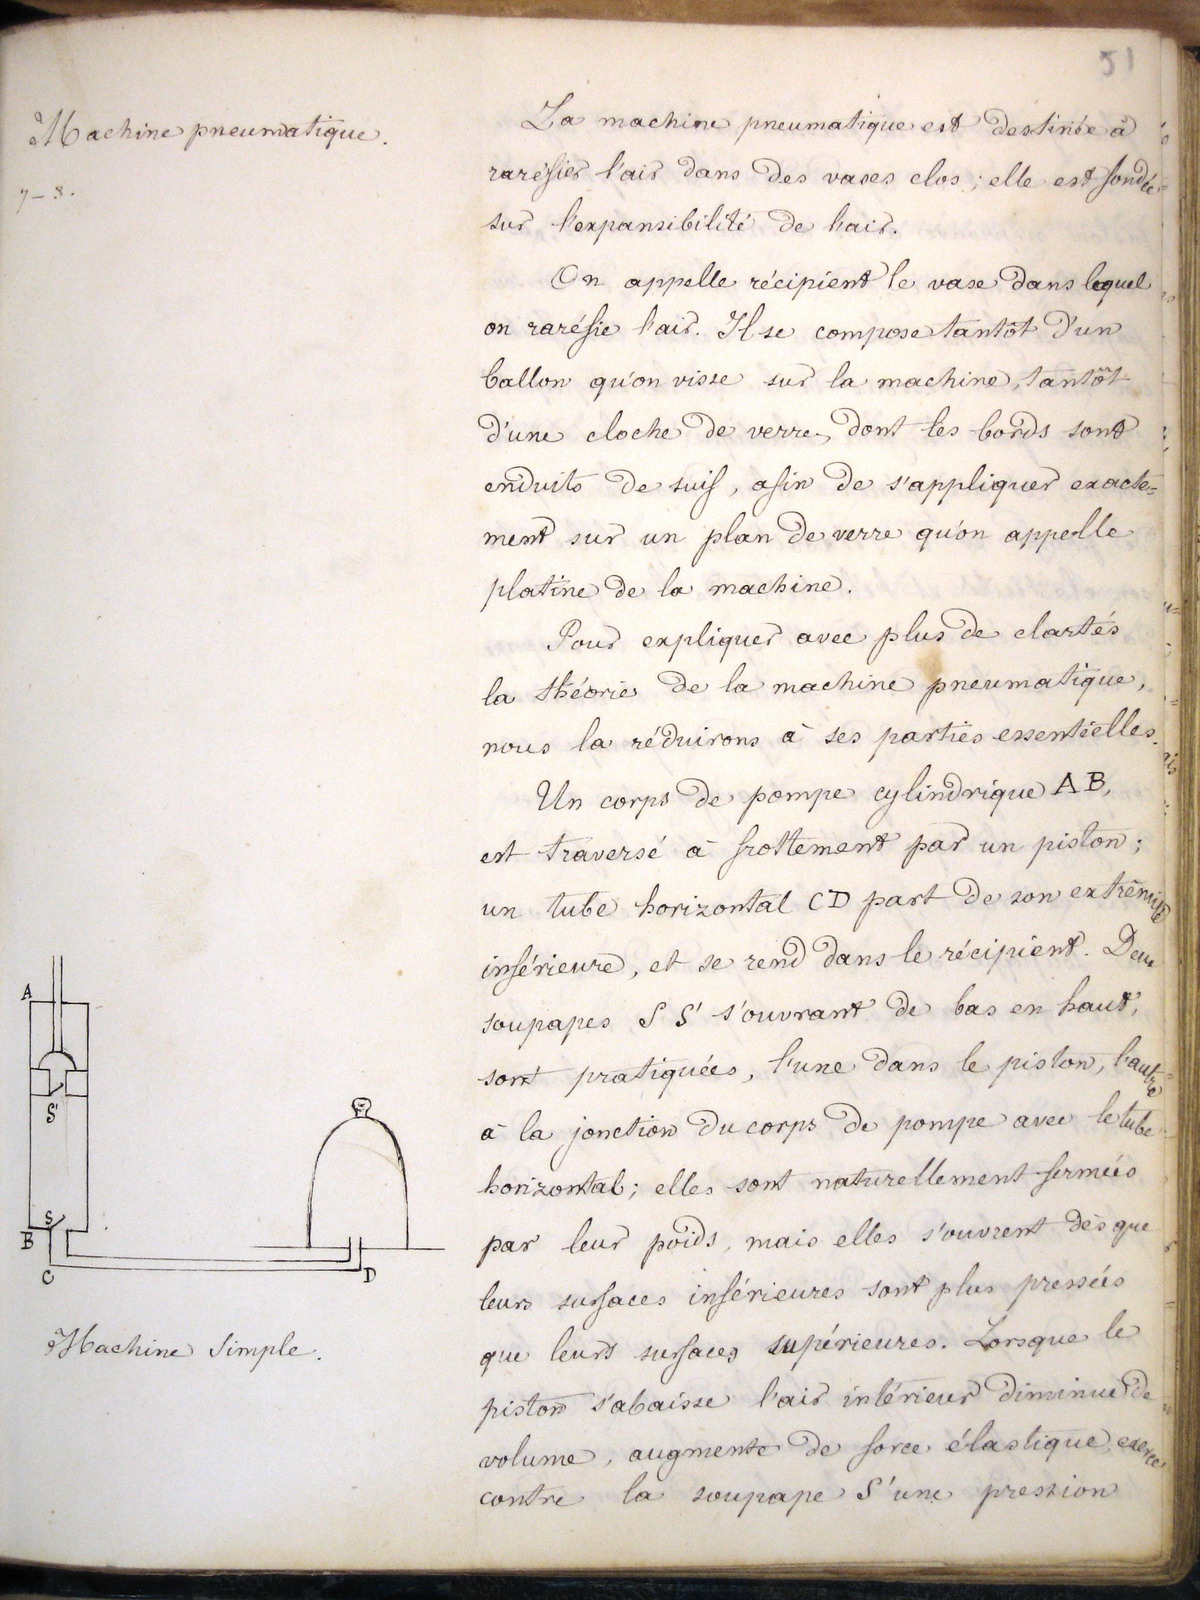 51
Machine pneumatique.
7-8.
La machine pneumatique est destinée à
raréfier l'air dans des vases clos ; elle est fondée
sur l'expansibilité de l'air.
On appelle récipient le vase dans lequel
on raréfie l'air. Il se compose tantôt d'un
ballon qu'on visse sur la machine, tantôt
d'une cloche de verre, dont les bords sont
enduits de suif, afin de s'appliquer exacte=
ment sur un plan de verre qu'on appelle
platine de la machine.
Pour expliquer avec plus de clartés
la théorie de la machine pneumatique,
nous la réduirons à ses parties essentielles.
Un corps de pompe cylindrique AB,
est traversé à frottement par un piston ;
un tube horizontal CD part de son extrémité
inférieure, et se rend dans le récipient. Deux
soupapes S S' s'ouvrant de bas en haut,
sont pratiquées, l'une dans le piston, l'autre
à la jonction du corps de pompe avec le tube
horizontal ; elles sont naturellement fermées
par leur poids, mais elles s'ouvrent dès que
leurs surfaces inférieures sont plus pressées
que leurs surfaces supérieures. Lorsque le
piston s'abaisse l'air intérieur diminue de
volume, augmente de force élastique, exerce
contre la soupape S' une pression
A
S'
S
B
C
D
Machine Simple.